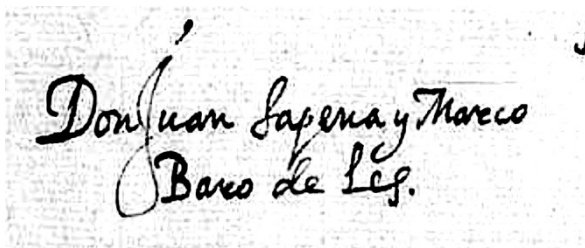 Don Juan Sapena y Mareco
Baro de Les.